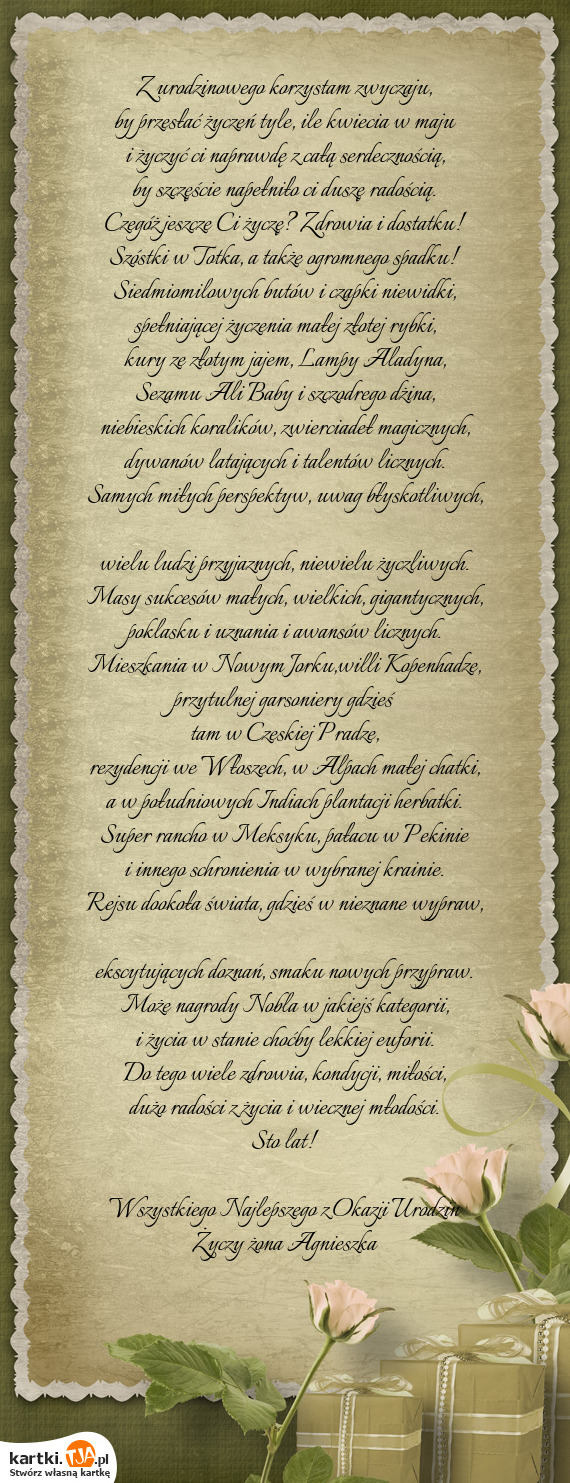 Z urodzinowego korzystam zwyczaju,
by przesłać życzeń tyle, ile kwiecia w maju
i życzyć ci naprawdę z całą serdecznością,
by szczęście napełniło ci duszę radością.
Czegóż jeszcze Ci życzę? Zdrowia i dostatku!
Szóstki w Totka, a także ogromnego spadku!
Siedmiomilowych butów i czapki niewidki,
spełniającej życzenia małej złotej rybki,
kury ze złotym jajem, Lampy Aladyna,
Sezamu Ali Baby i szczodrego dżina,
niebieskich koralików, zwierciadeł magicznych,
dywanów latających i talentów licznych.
Samych miłych perspektyw, uwag błyskotliwych,
wielu ludzi przyjaznych, niewielu życzliwych.
Masy sukcesów małych, wielkich, gigantycznych,
poklasku i uznania i awansów licznych.
Mieszkania w Nowym Jorku,willi Kopenhadze,
przytulnej garsoniery gdzieś
tam w Czeskiej Pradze,
rezydencji we Włoszech, w Alpach małej chatki,
a w południowych Indiach plantacji herbatki.
Super rancho w Meksyku, pałacu w Pekinie
i innego schronienia w wybranej krainie.
Rejsu dookoła świata, gdzieś w nieznane wypraw,
ekscytujących doznań, smaku nowych przypraw.
Może nagrody Nobla w jakiejś kategorii,
i życia w stanie choćby lekkiej euforii.
Do tego wiele zdrowia, kondycji, miłości,
dużo radości z życia i wiecznej młodości.
Sto lat!
Wszystkiego Najlepszego z Okazji Urodzin
Życzy żona Agnieszka
kartki.TJA.pl
Stwórz własną kartkę